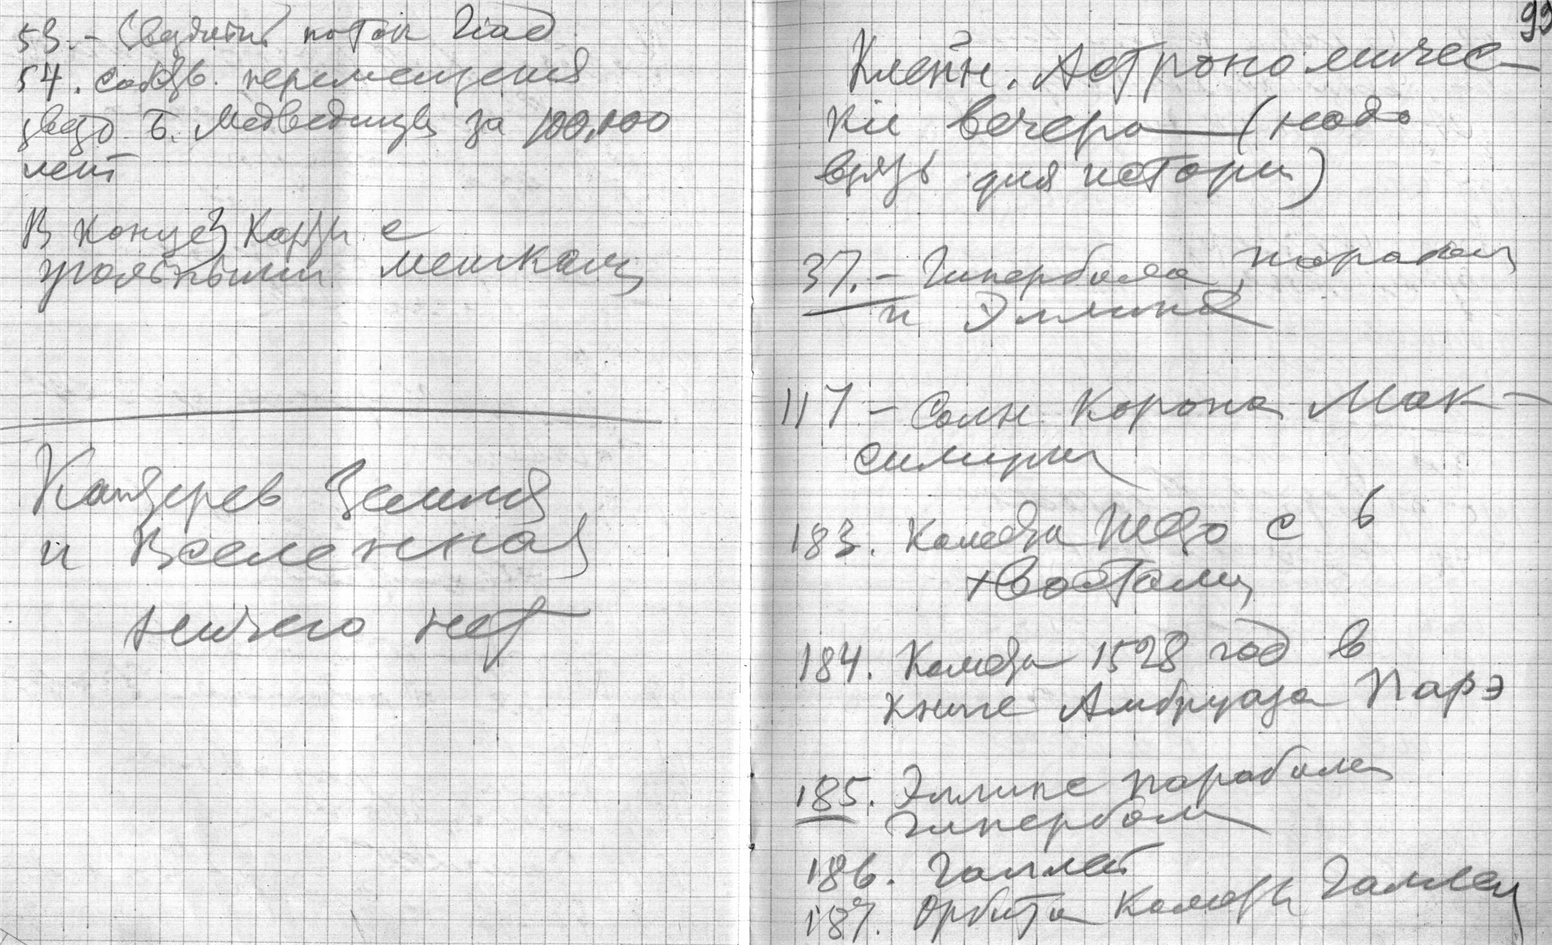 53. – Звездный поток Гиад
54. перемещения
звезд Б. Медведицы за 100.000
лет
В конце карты с
угольными мешками
Земля
и Вселенная
ничего нет
99
Клейн. Астрономичес-
кие вечера – (надо
взять для истории)
37. – Гипербола, парабола
и Эллипс
117 – Солн. Корона Мак-
симум
183. Комета Шезо с 6
хвостами
184. Комета 1528 год в
книге Амбруаза Парэ
185. Эллипс парабола
гипербола
186. Галлей
187. Орбита Кометы Галлея